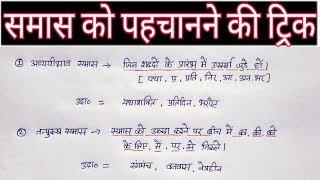 समास को पहचानने की ट्रिक
① अव्ययीभाव समास → जिन शब्दों के प्रारंभ में उपसर्ग जुड़े हों।
[ यथा, प्र, प्रति, निर, आ, अन, भर ]
उदा० = यथाशक्ति, प्रतिदिन, भरपेट
② तत्पुरुष समास → समास को अलग करने पर बीच में का, की, को
के लिए, में, पर, से निकले।
उदा० = रंगमंच, वनवास, नेत्रहीन